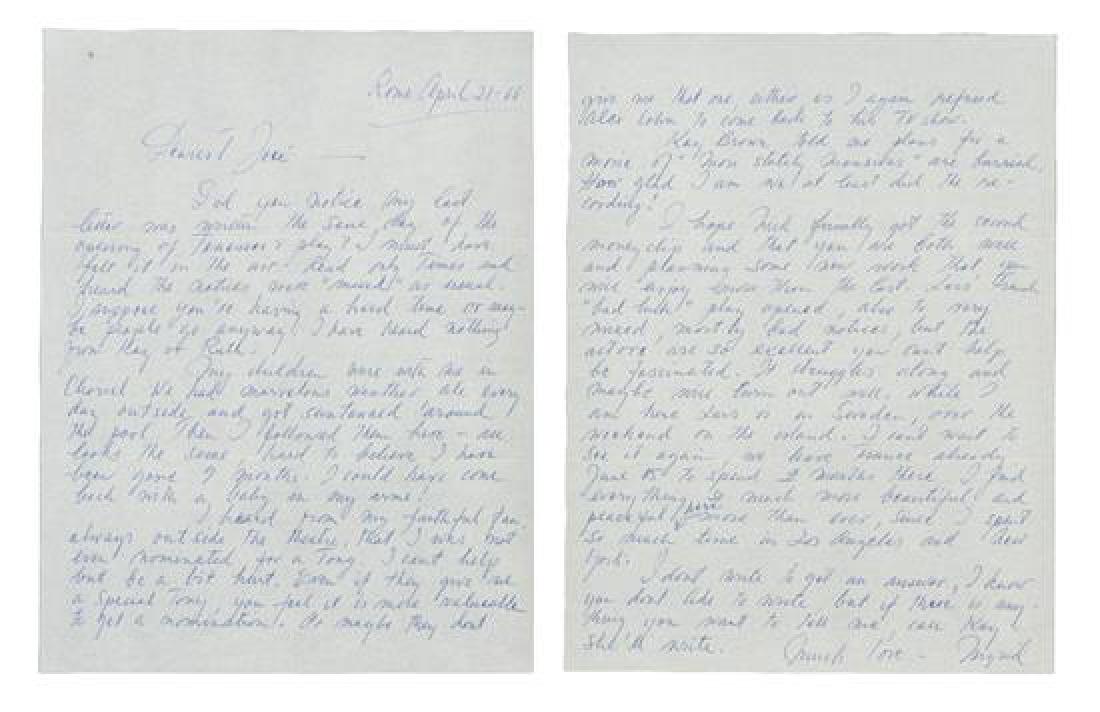 Rome April 21-68
Dearest José —
Did you notice my last
letter was written the same day of the
opening of Tennessee's play? I must have
felt it in the air. Read only Times and
heard the notices were "mixed" as usual.
I suppose you're having a hard time or may-
be people go anyway! I have heard nothing
from Kay or Ruth.
My children were with me in
Choisel. We had marvelous weather ate every
day outside, and got suntanned around
the pool. Then I followed them here – all
looks the same, hard to believe I have
been gone 9 months. I could have come
back with a baby in my arms!
I heard from my faithful fan,
always outside the theatre, that I was not
even nominated for a Tony. I can't help
but be a bit hurt. Even if they give me
a Special Tony, you feel it is more valuable
to get a nomination! Or maybe they don't
give me that one either as I again refused
Alex Cohn to come back to his TV show.
Kay Brown told me plans for a
movie of "More stately mansions" are burried.
How glad I am we at least did the re-
cording!
I hope Nick finally got the second
moneyclip and that you are both well
and planning some new work that you
will enjoy more than the last. Lars' French
"bad luck" play opened, also to very
mixed, mostly bad notices, but the
actors are so excellent you can't help
be fascinated. It struggles along and
maybe will turn out well. While I
am here Lars is in Sweden, over the
weekend on the island. I can't wait to
see it again, we leave France already
June to spend 2 months there. I find
everything is much more beautiful and
peaceful here more than ever, since I spent
so much time in Los Angeles and New
York!
I don't write to get an answer, I know
you don't like to write but if there is any-
thing you want to tell me, call Kay –
She'll write.
Much love – Ingrid